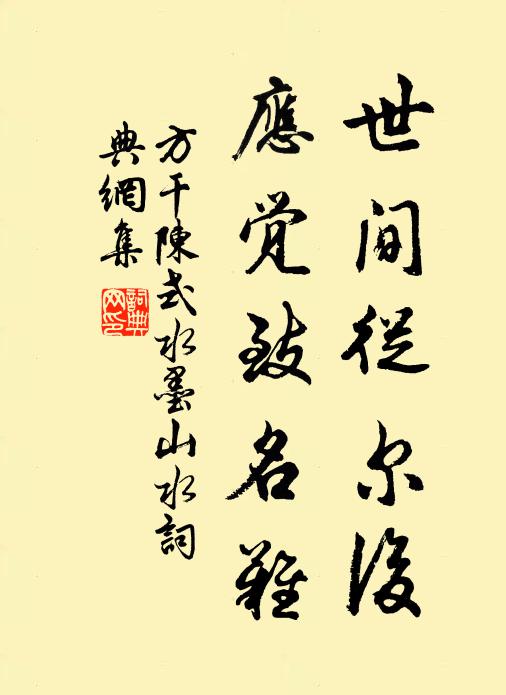 世間從尔後
應覚致名難
方干陳式水墨山水詞
典網集
詞典
网印